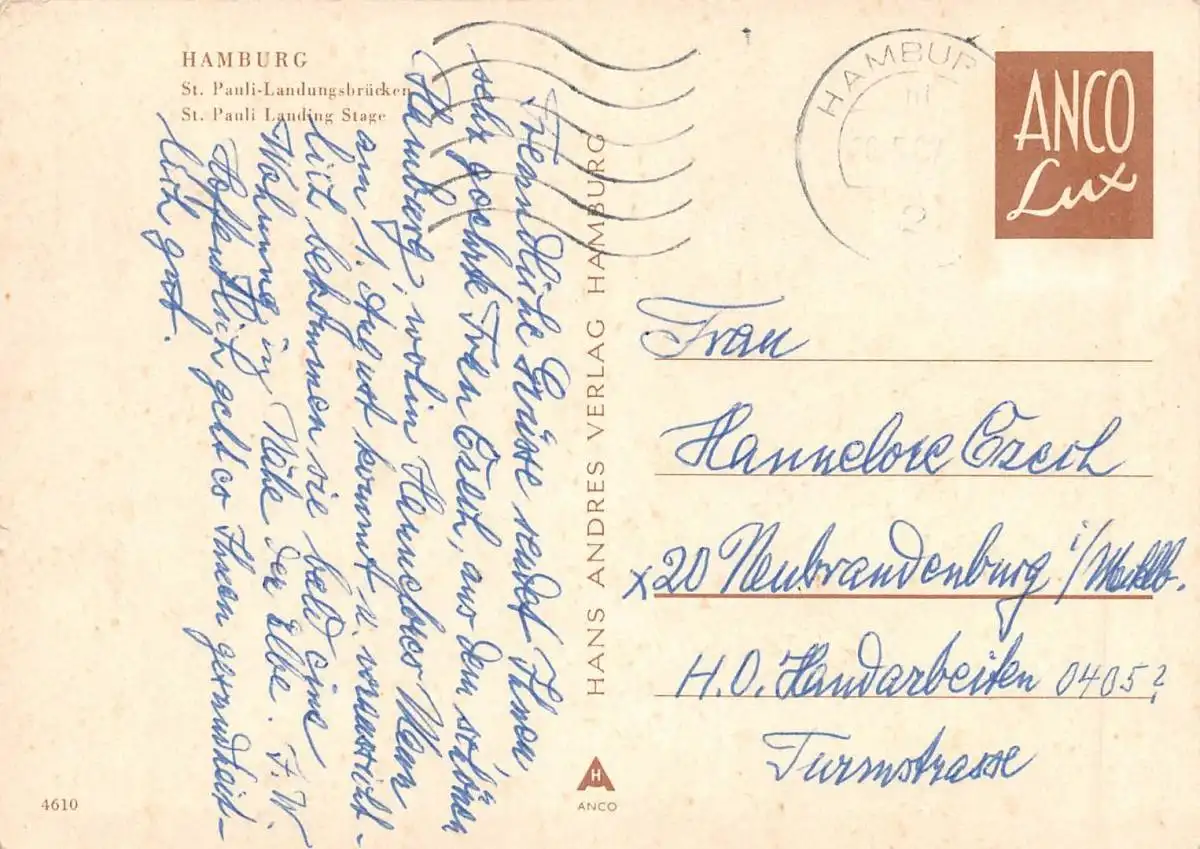 HAMBURG
St. Pauli-Landungsbrücken
St. Pauli Landing Stage
Freundliche Grüsse sendet Ihnen
sehr geehrte Frau Czech, aus dem schönen
Hamburg, wohin
am 1. August kommt u. voraussicht-
lich bekommen sie bald eine
Wohnung in Nähe der Elbe. F. W.
Hoffentlich geht es Ihnen gesundheit-
lich gut.
HANS ANDRES VERLAG HAMBURG
H
ANCO
4610
HAMBUR
2
ANCO
Lux
Frau
Hannelore Czech
x20 Neubrandenburg i/Mecklb.
H.O. Handarbeiten 0405?
Turmstrasse